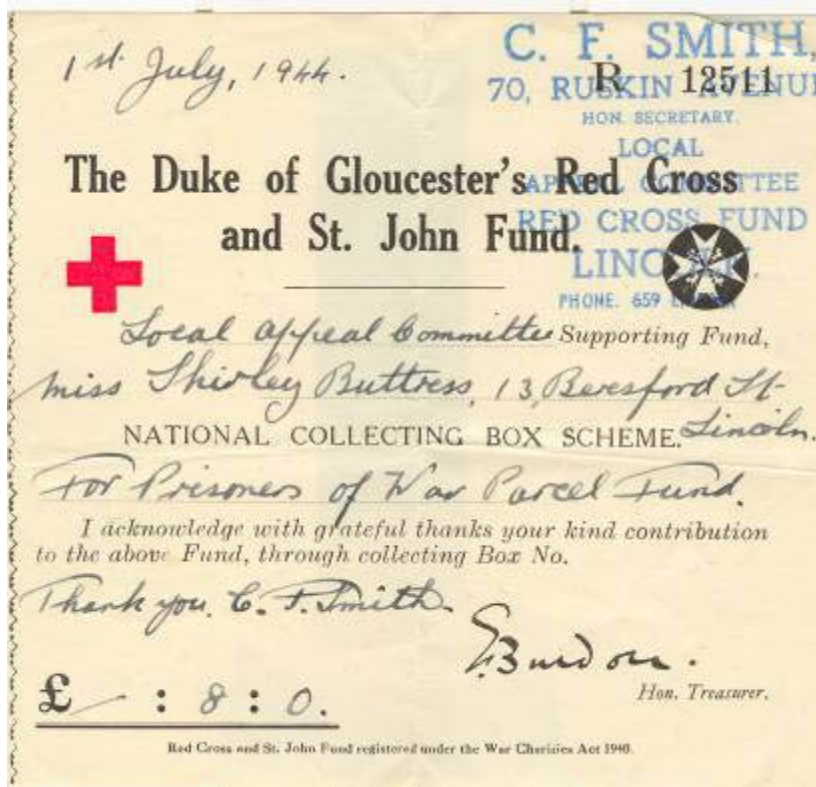 1st July, 1944.
C. F. SMITH,
R 12511
70, RUSKIN AVENUE
HON. SECRETARY.
LOCAL
APPEAL COMMITTEE
RED CROSS FUND
LINCOLN.
PHONE. 659
The Duke of Gloucester's Red Cross
and St. John Fund.
Local Appeal Committee Supporting Fund,
Miss Shirley Buttress, 13, Beresford St
NATIONAL COLLECTING BOX SCHEME. Lincoln.
For Prisoners of War Parcel Fund.
I acknowledge with grateful thanks your kind contribution
to the above Fund, through collecting Box No.
Thank you. C. F. Smith.
E. Burdon.
Hon. Treasurer.
£ — : 8 : 0.
Red Cross and St. John Fund registered under the War Charities Act 1940.